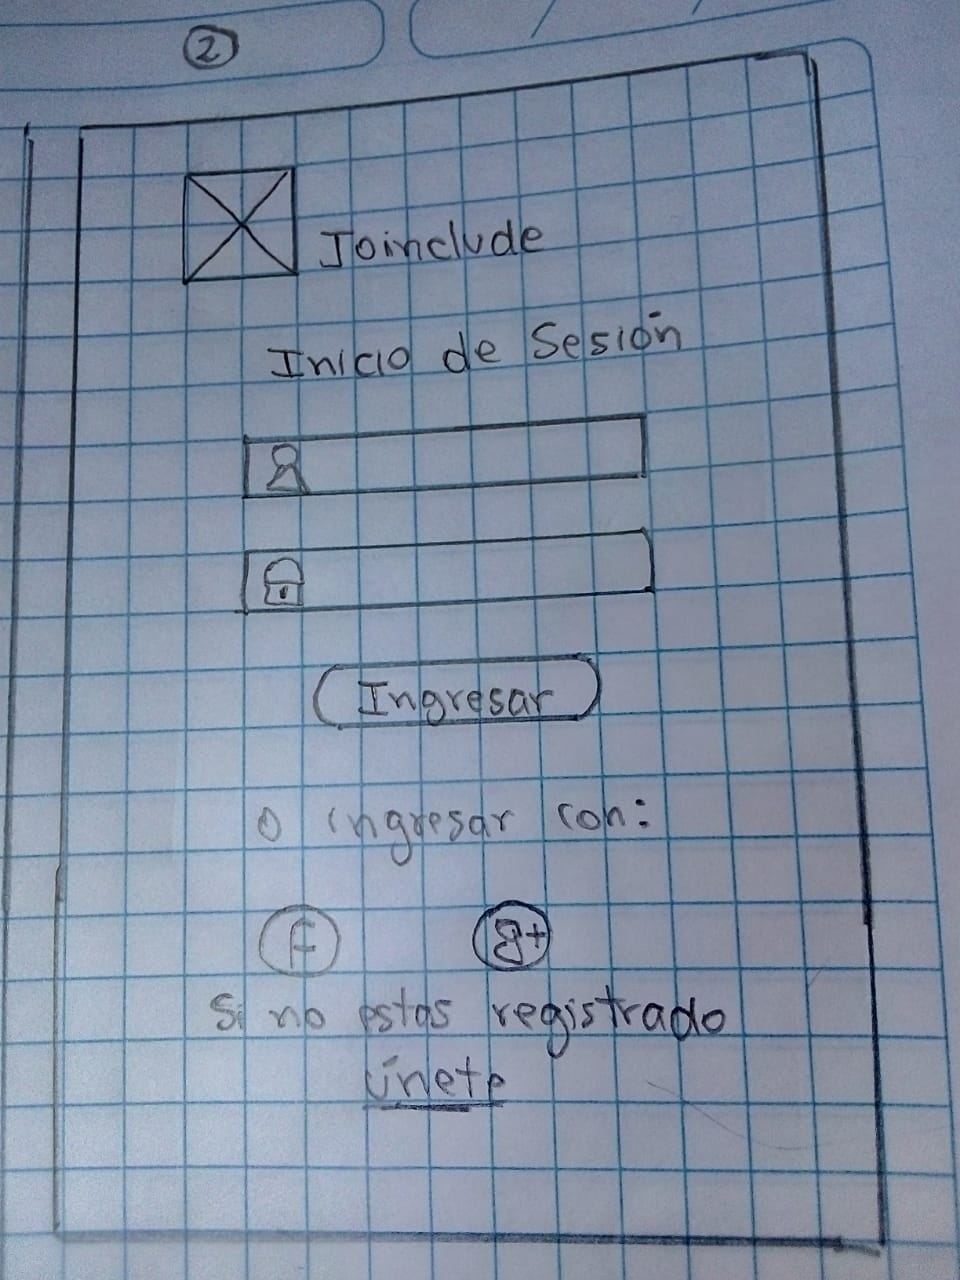 2
Joinclude
Inicio de Sesión
Ingresar
O ingresar con:
f g+
Si no estas registrado
únete